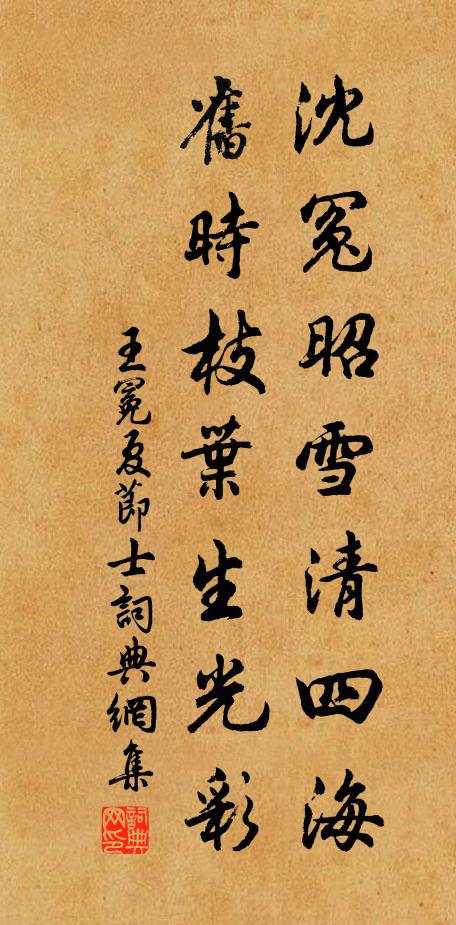 沈冤昭雪清四海
舊時枝葉生光彩
王冕夏節士詞典網集
詞典網印